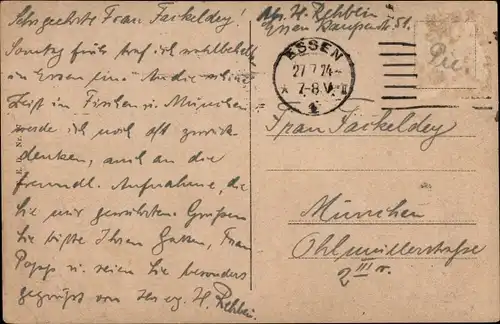 Sehrgeehrte Frau Fackeldey!
Sonntag früh traf ich wohlbehalten
in Essen ein. An die schöne
Zeit in Fischen u. München
werde ich noch oft zurück
denken, auch an die
freundl. Aufnahme, die
Sie mir gewährten. Grüßen
Sie bitte Ihren Gatten, Frau
u. seien Sie besonders
gegrüßt von Ihrer H. Rehbein.
Abs. H. Rehbein
Essen 51.
ESSEN
27.7.24
7-8 V.
Frau Fackeldey
München
Ohlmüllerstraße
2 III r.